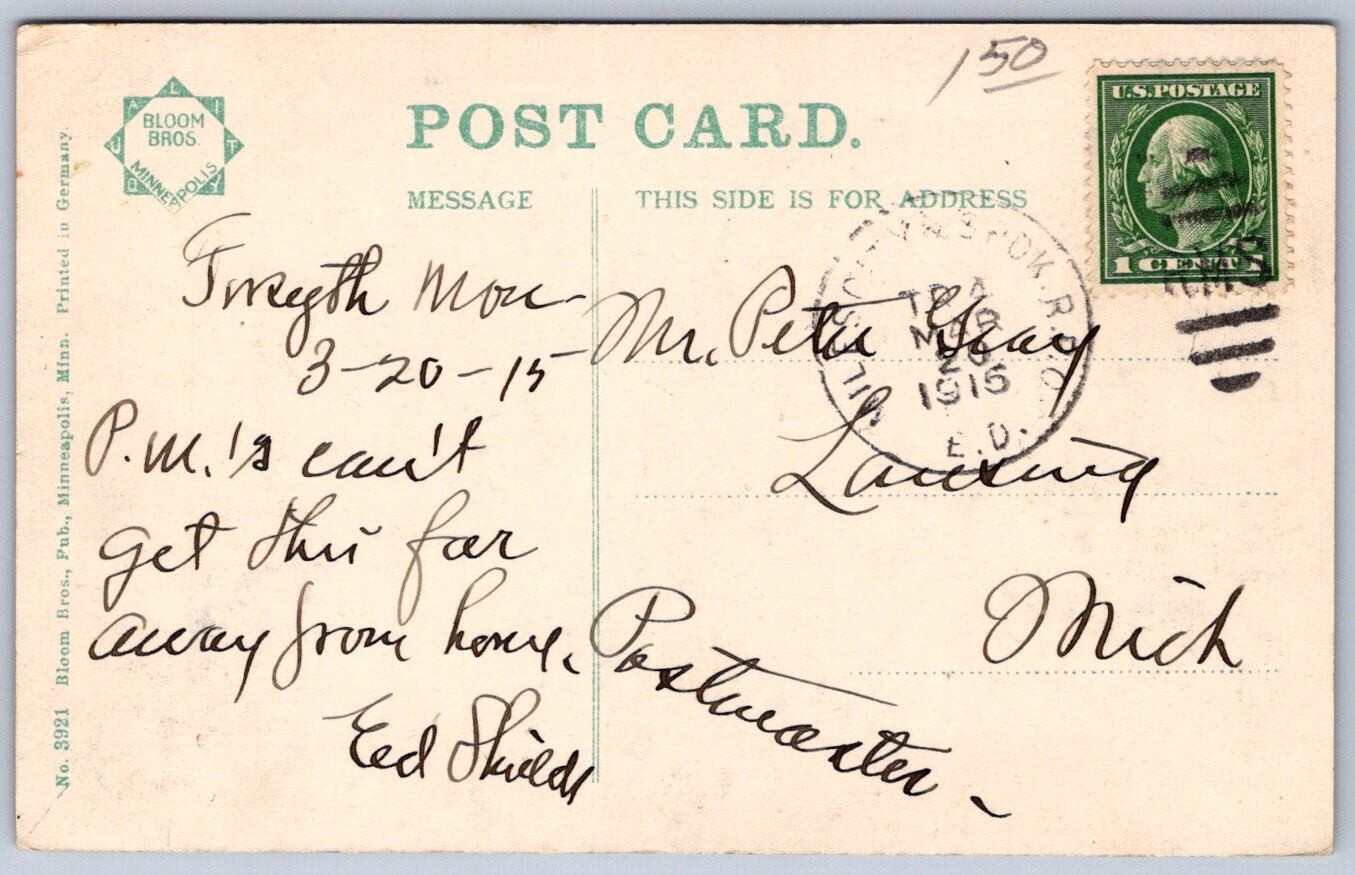 1 50
QUALITY
BLOOM
BROS.
MINNEAPOLIS
POST CARD.
MESSAGE
THIS SIDE IS FOR ADDRESS
U.S.POSTAGE
1 CENT 1
RMS
TR A
MAR
20
1915
E.D.
R.P.O.
Forsyth Mon
3-20-15
P.M.'s can't
get this far
away from home.
Ed Shields
Mr. Peter Gray
Lansing
Mich
Postmaster -
No. 3921 Bloom Bros., Pub., Minneapolis, Minn. Printed in Germany.